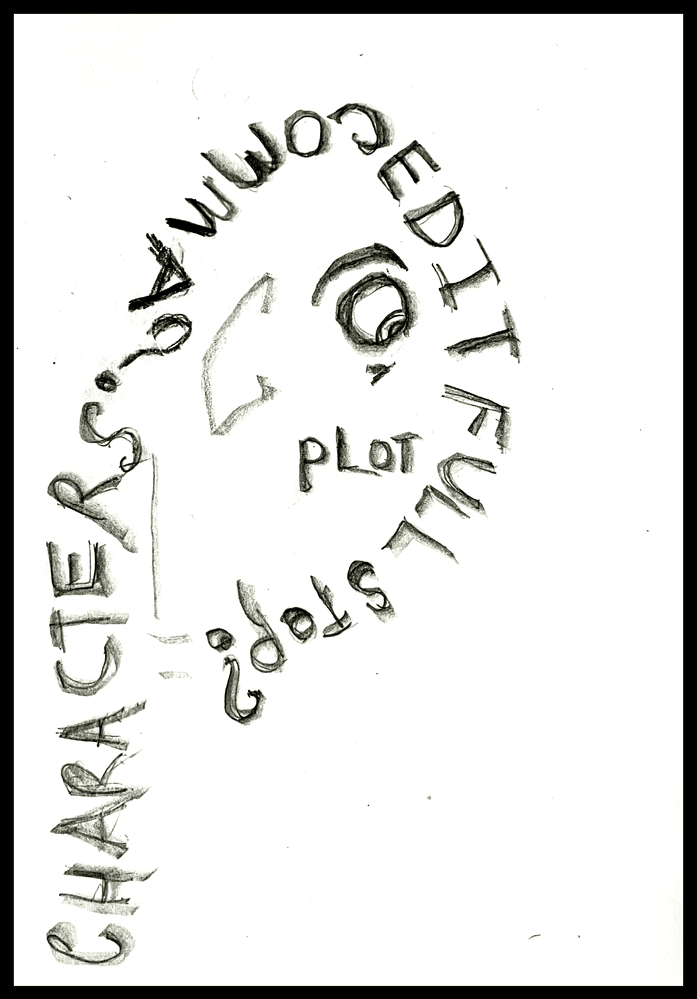 CHARACTERS.
COMMA,
EDIT FULL STOP.?
PLOT